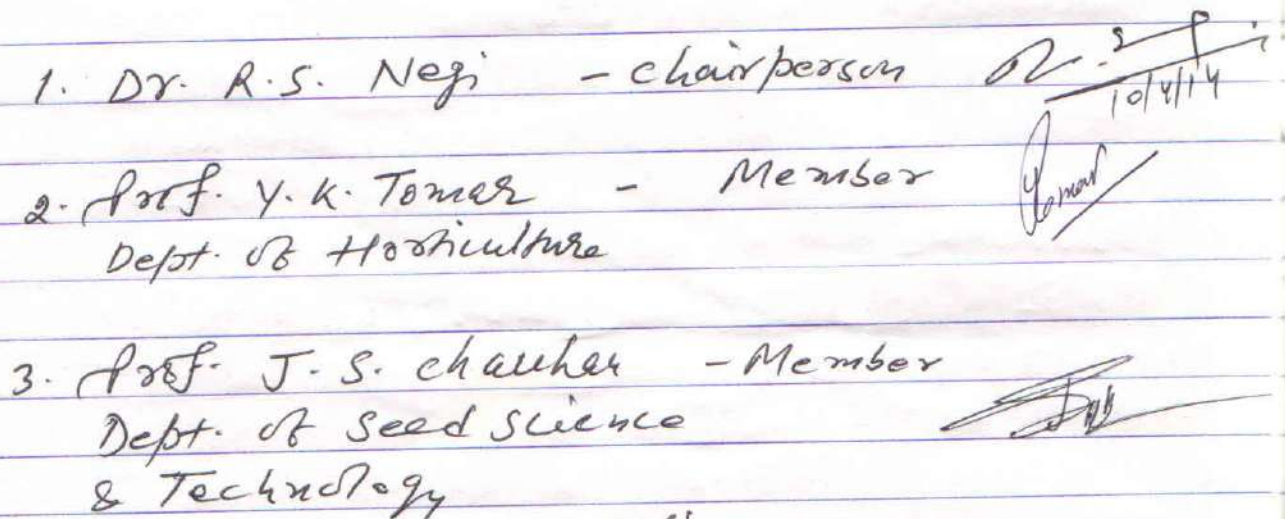 1. Dr. R.S. Negi - chairperson
10/4/14
2. Prof. Y.K. Tomar - Member
Tomar
Dept. of Horticulture
3. Prof. J.S. Chauhan - Member
Dept. of Seed Science
& Technology